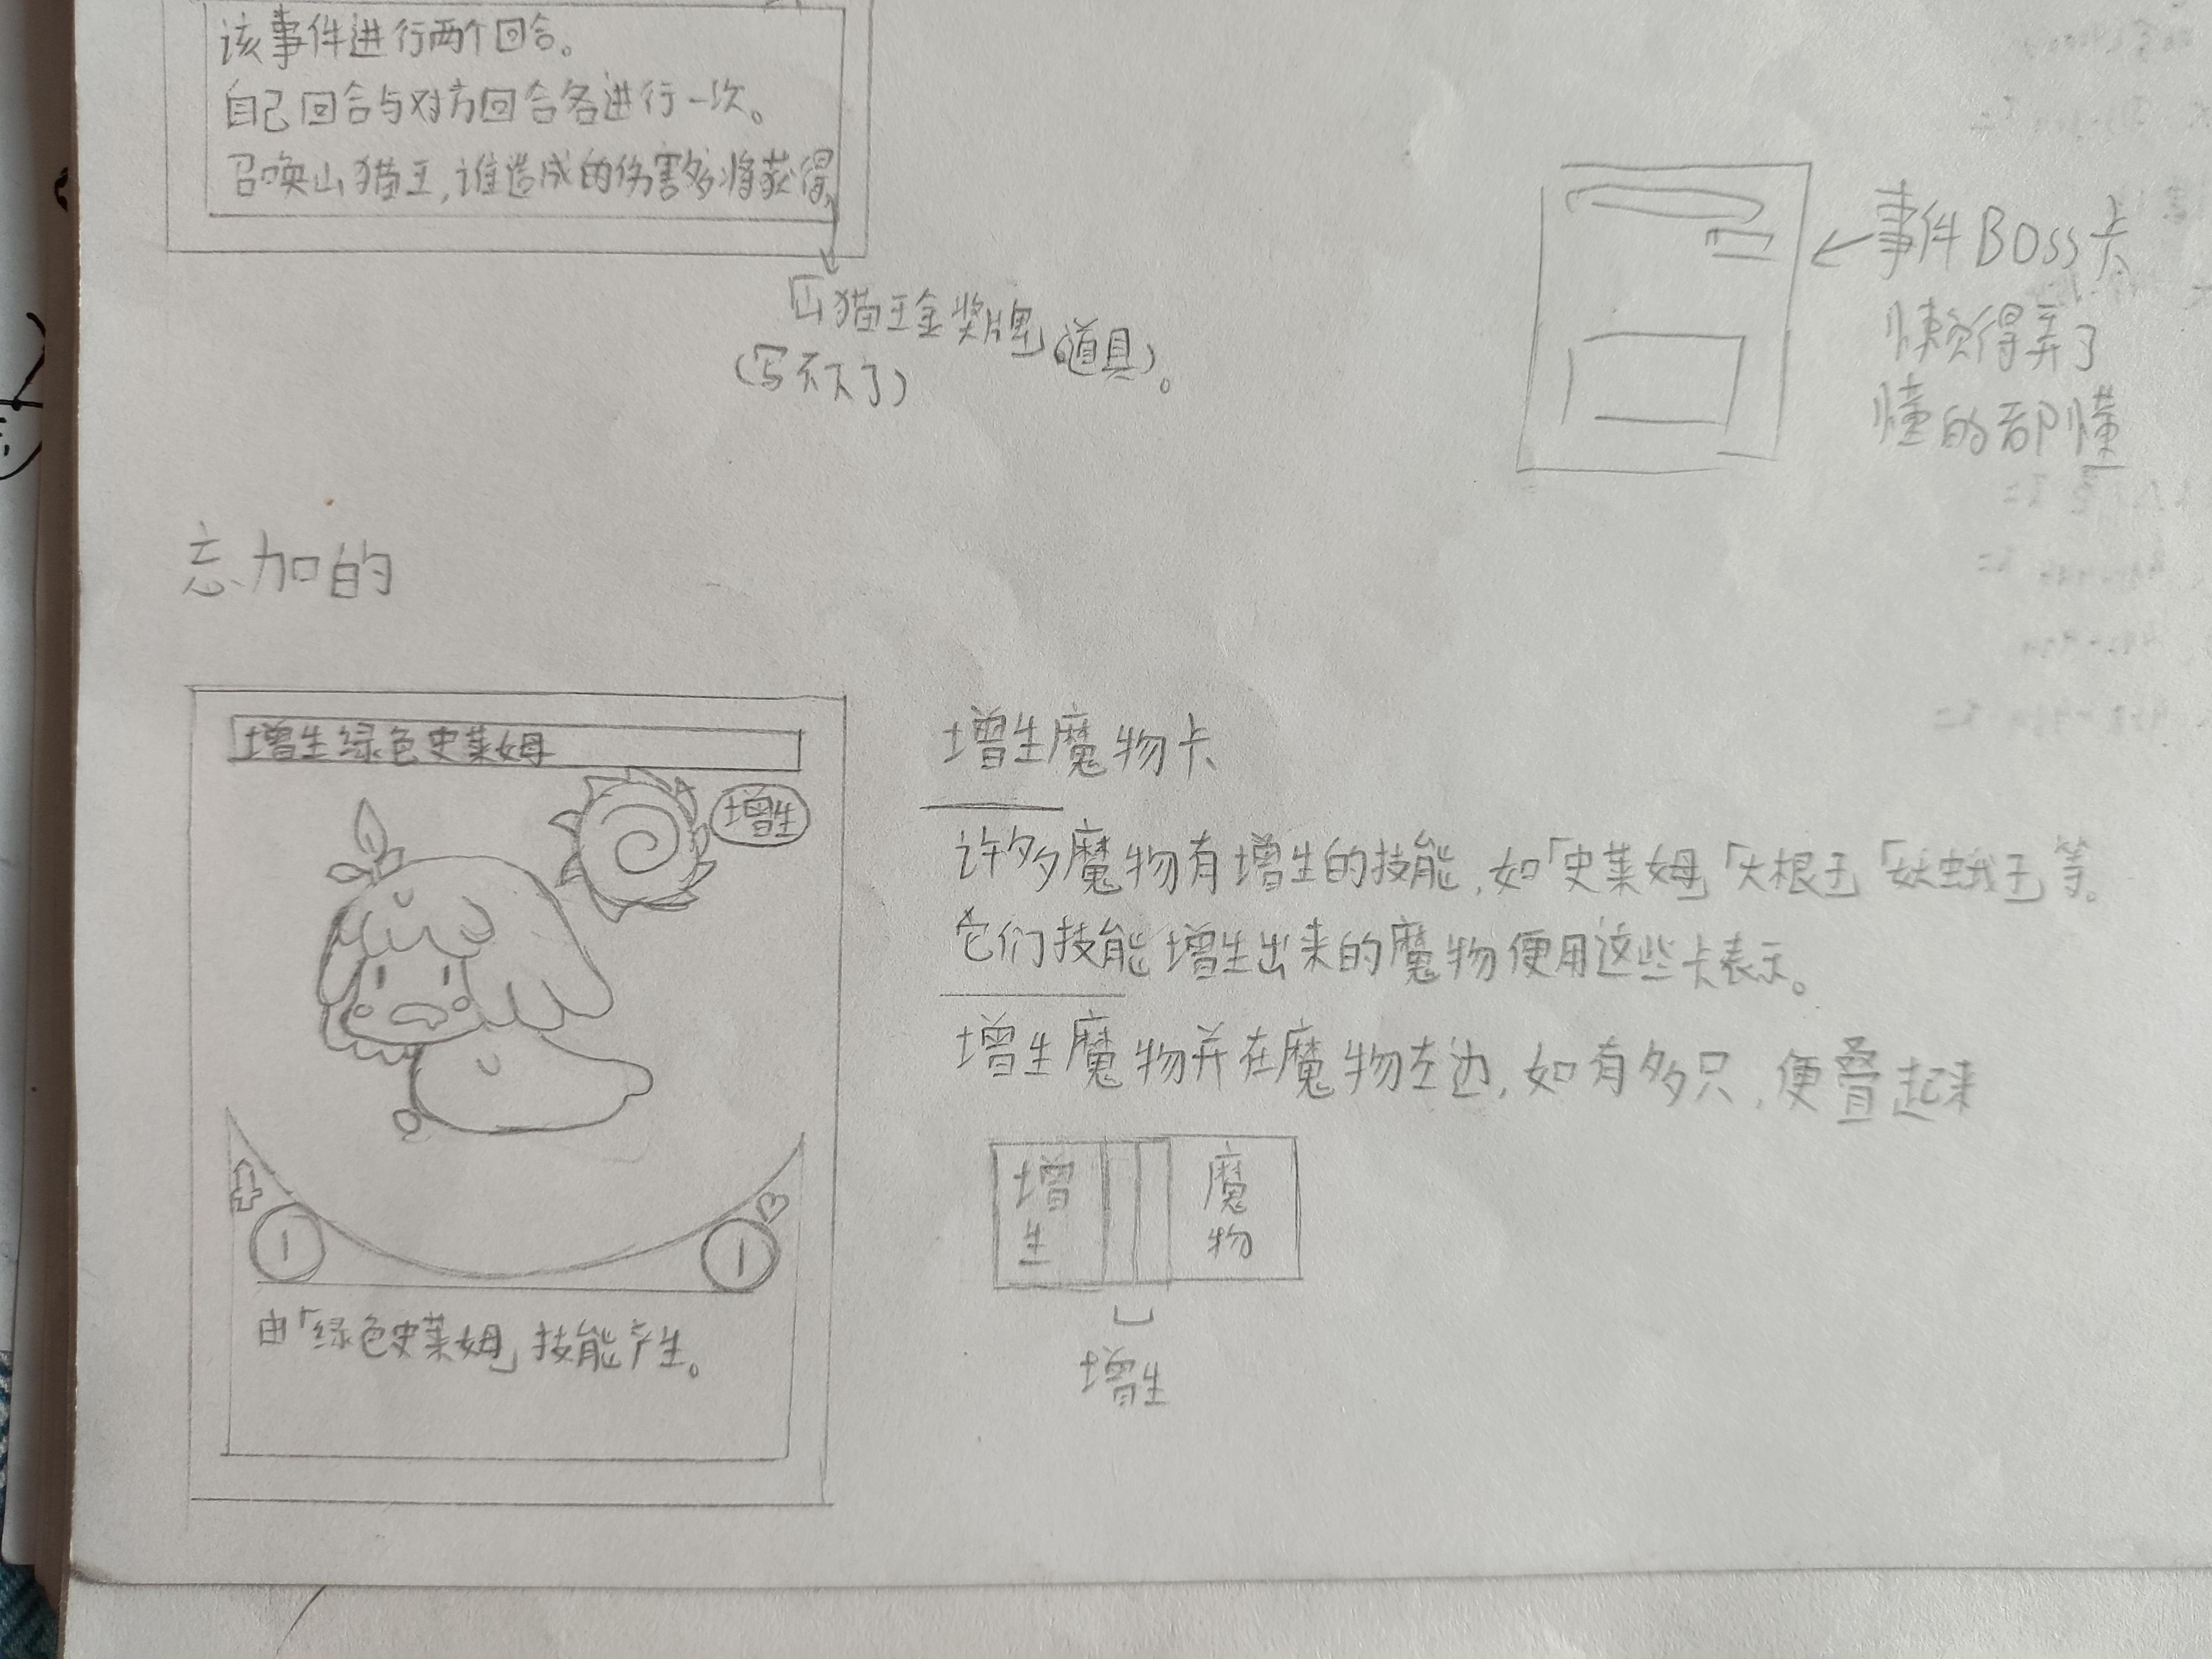 该事件进行两个回合。
自己回合与对方回合各进行一次。
召唤山猫王,谁造成的伤害多将获得
「山猫王金奖牌」(道具)。
(写不下了)
事件BOSS卡
懒得弄了
懂的都懂
忘加的
增生绿色史莱姆
增生
1
1
由「绿色史莱姆」技能产生。
增生魔物卡
许多魔物有增生的技能,如「史莱姆」「大根王」「妖蛾王」等。
它们技能增生出来的魔物便用这些卡表示。
增生魔物并在魔物左边,如有多只,便叠起来
增生
魔物
增生